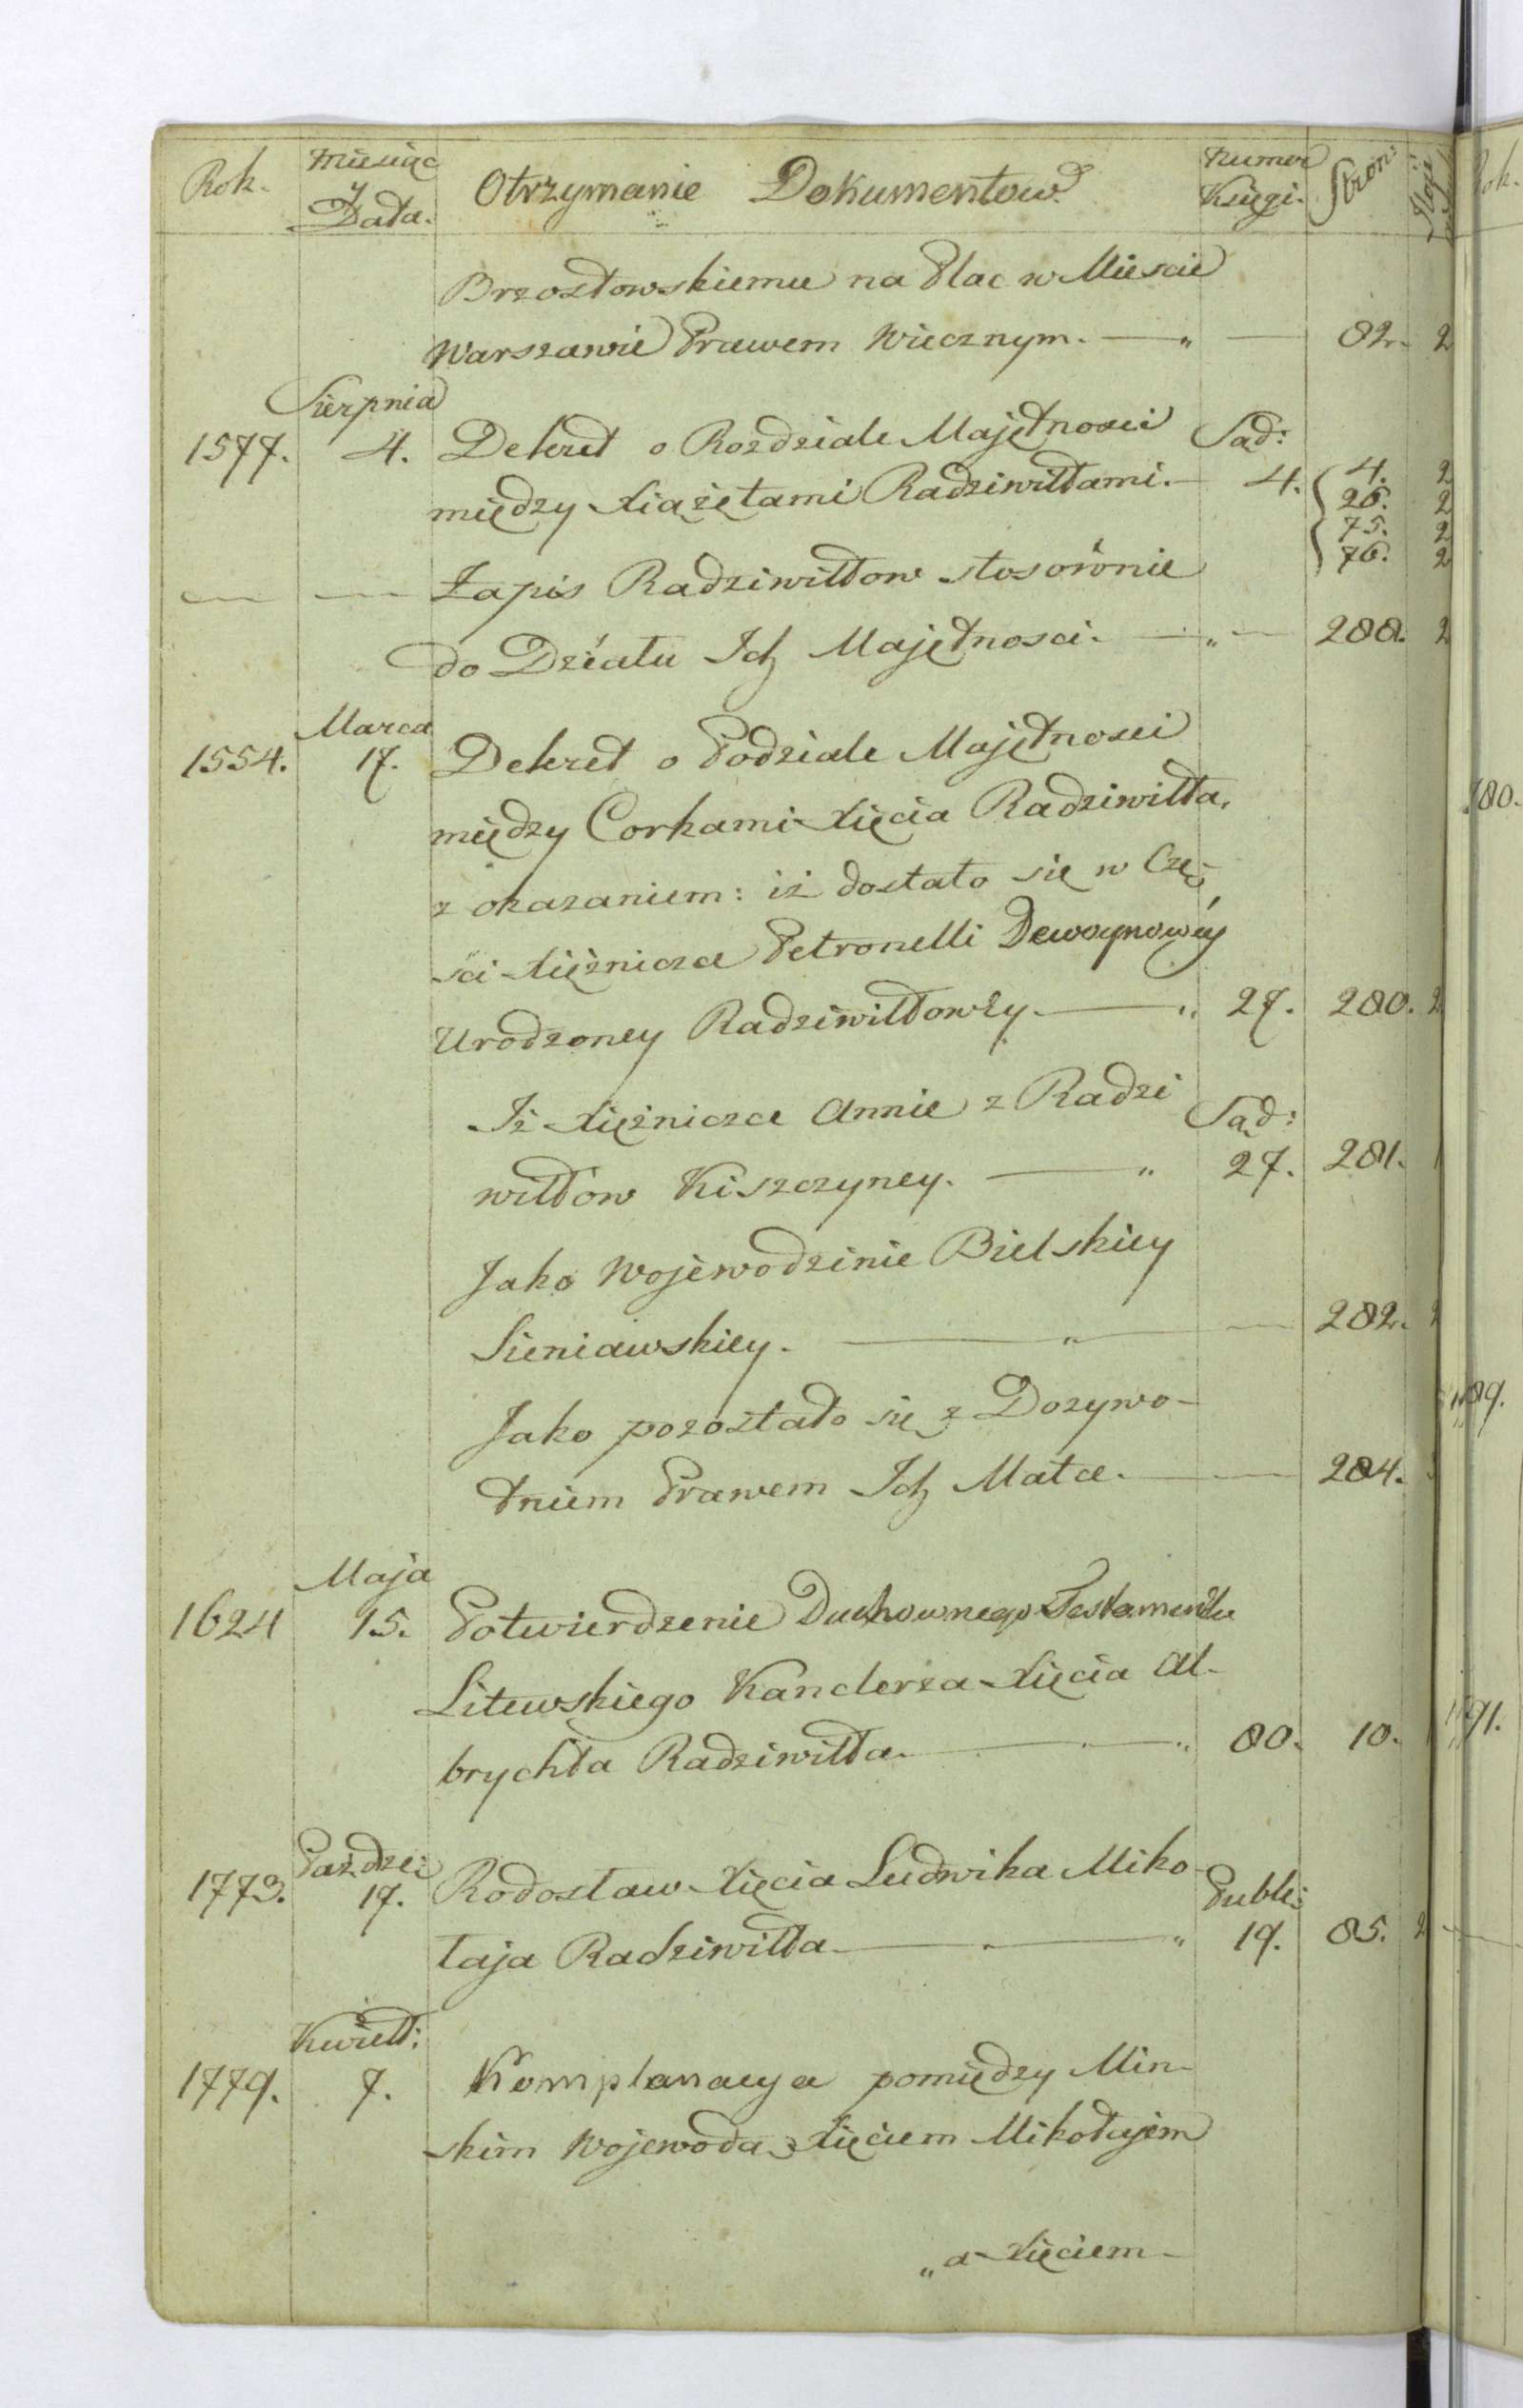 Rok. Miesiąc y Data. Otrzymanie Dokumentow Numer Księgi. Stron:
Brzostowskiemu na Plac w Miescie
Warszawie Prawem Wiecznym. — " — 82. 2
Sierpnia
1577. 4. Dekret o Rozdziale Majętnosci Sąd:
między Xiążętami Radziwiłłami. — 4. 4. 2
26. 2
75. 2
76. 2
— — Zapis Radziwiłłow stosownie
do Działu Ich Majętnosci. — " — 288. 2
Marca
1554. 17. Dekret o Podziale Majętnosci
między Corkami Xięcia Radziwiłła,
z okazaniem: iż dostało się w Czę-
sci Xiężnicze Petronelli Dewoynowey
Urodzoney Radziwiłłowny. — " 27. 280. 2
Iż Xiężnicze Annie z Radzi Sąd:
wiłłów Kiszczyney. — " 27. 281.
Jako Wojewodzinie Bielskiey
Sieniawskiey. — " — 282.
Jako pozostało się z Dozywo-
tniem Prawem Ich Matce. — — 284.
Maja
1624 15. Potwierdzenie Duchownego Testamentu
Litewskiego Kanclerza Xięcia Al-
brychta Radziwiłła. — " 80. 10.
Paździ:
1773. 17. Rodosław Xięcia Ludwika Miko- Publ:
łaja Radziwiłła. — " 19. 85. 2
Kwiet:
1779. 7. Komplanacya pomiędzy Min-
skim Wojewodą Xięciem Mikołajem
"a Xięciem-
180.
91.